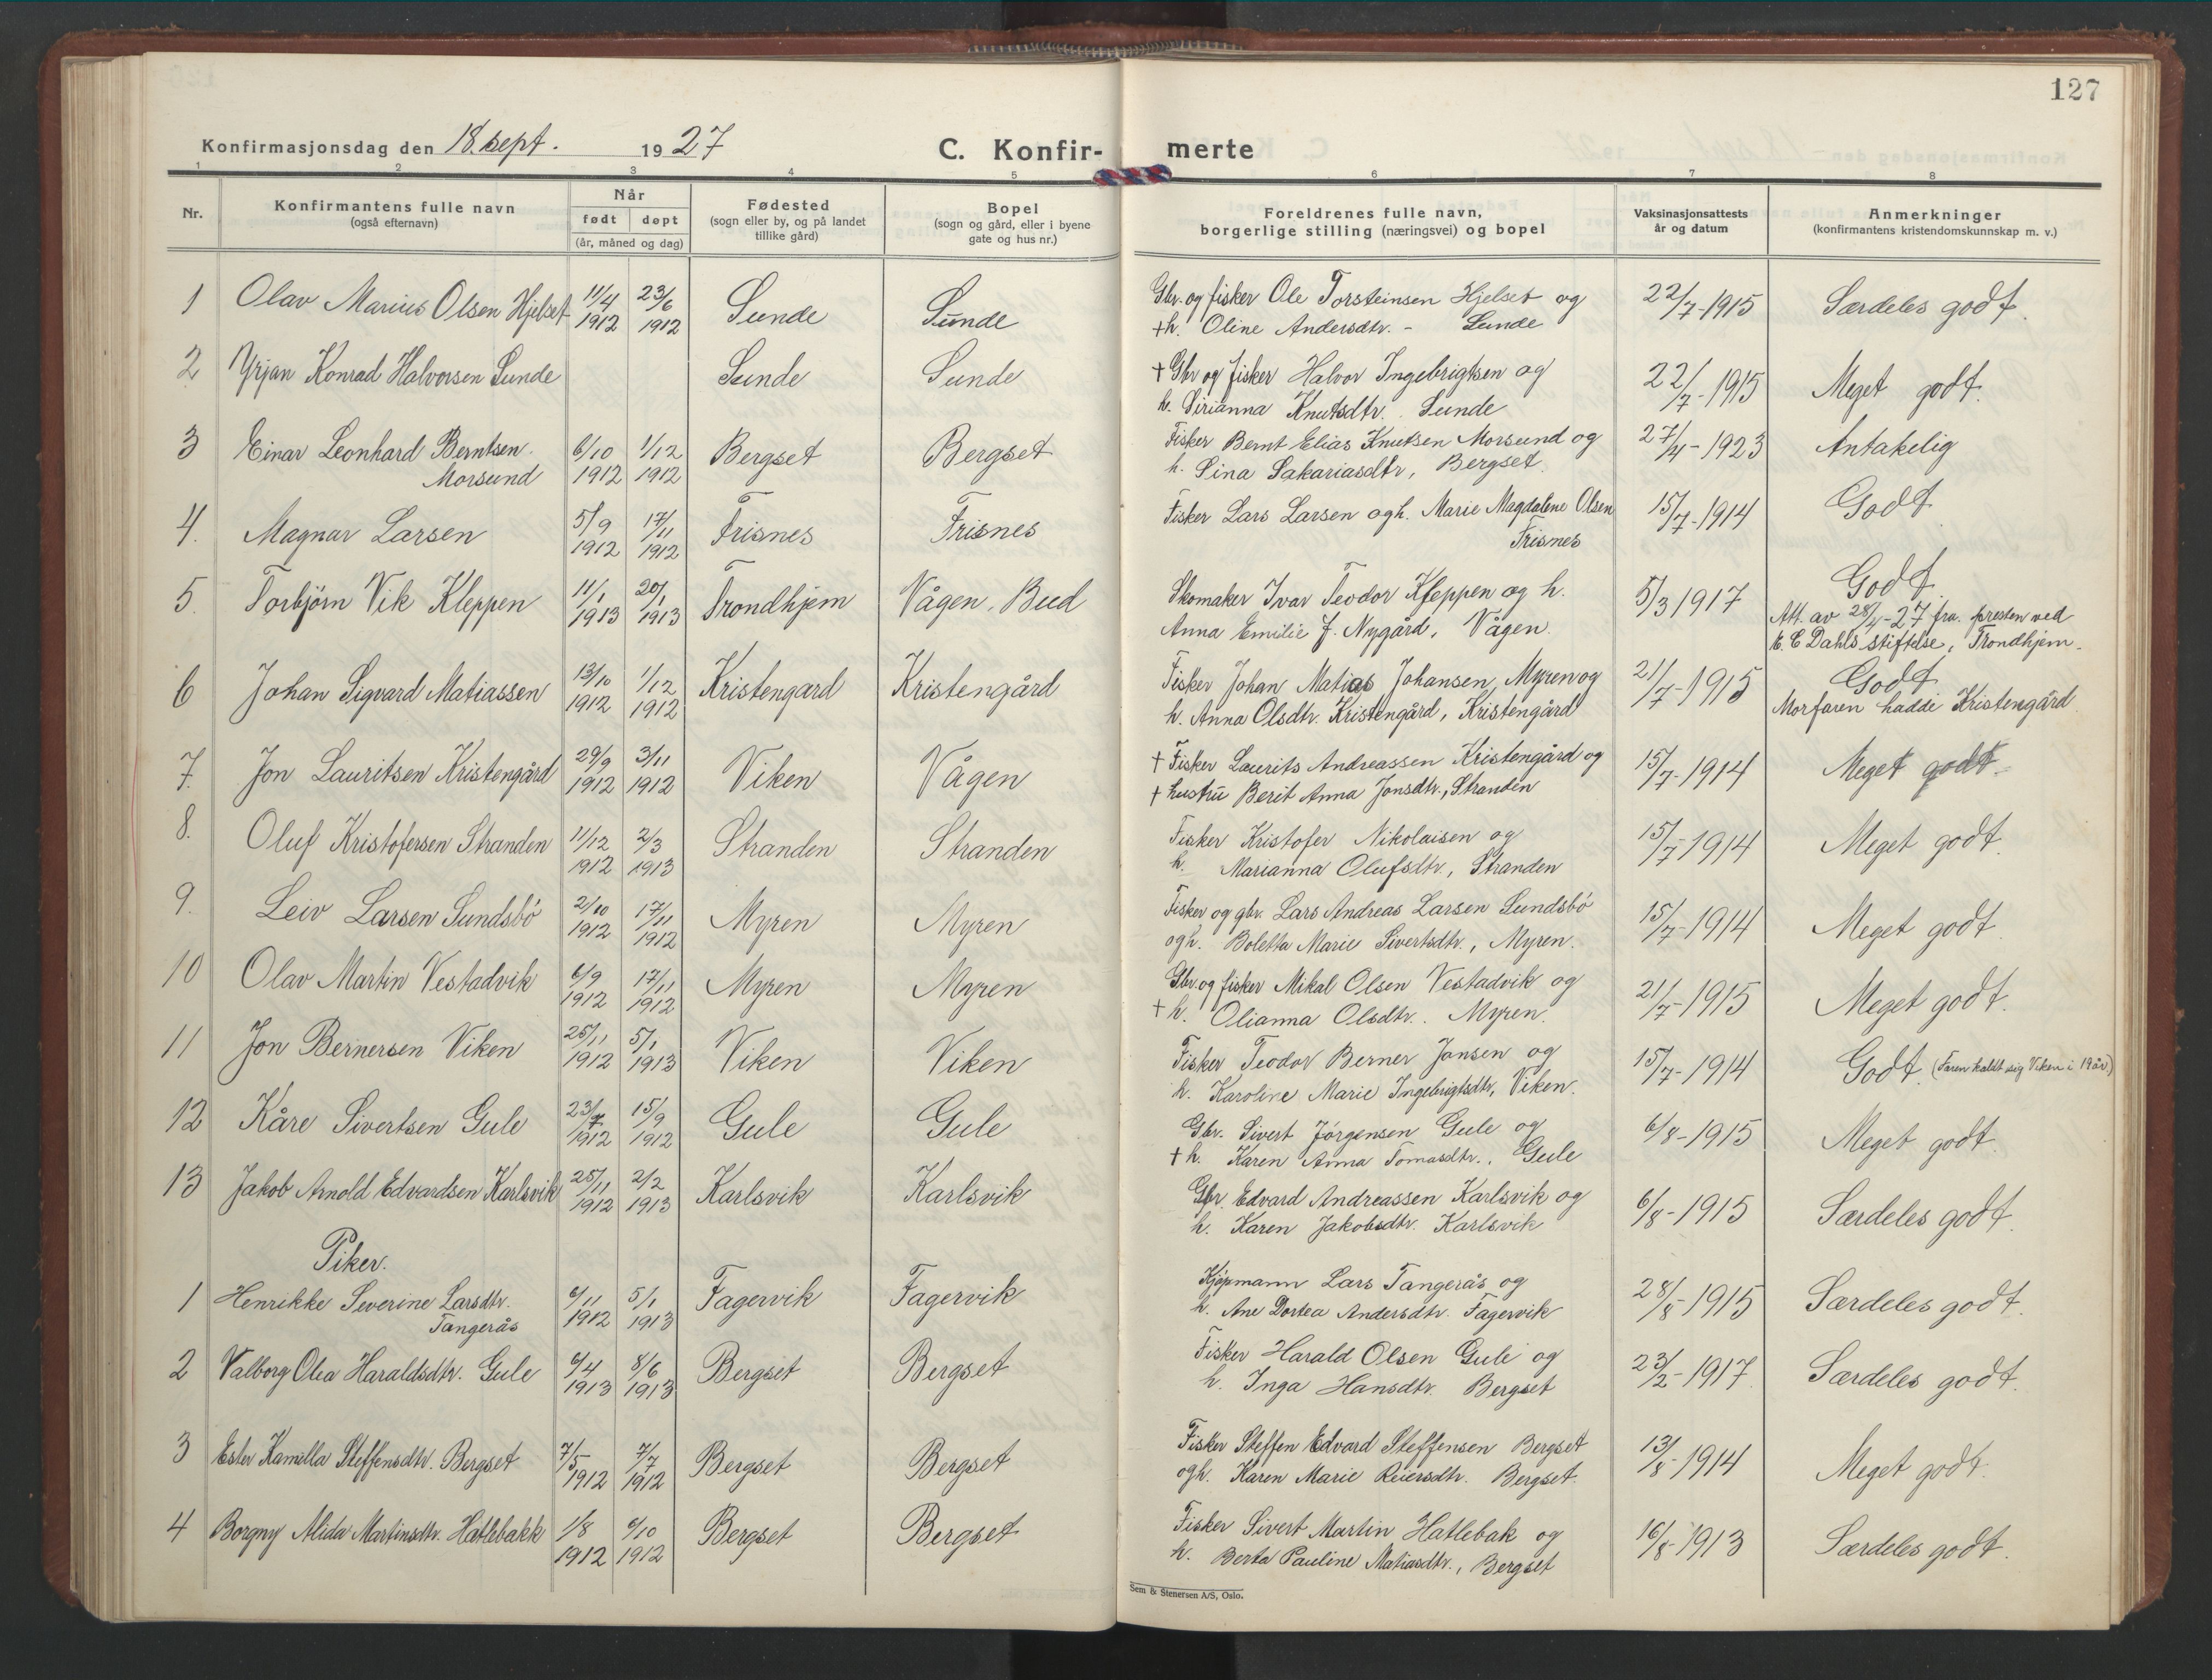 127
Konfirmasjonsdag den 18. sept. 1927 C. Konfir- merte
1 2 3 4 5 6 7 8
Nr. Konfirmantens fulle navn (også efternavn) Når født døpt (år, måned og dag) Fødested (sogn eller by, og på landet tillike gård) Bopel (sogn og gård, eller i byene gate og hus nr.) Foreldrenes fulle navn, borgerlige stilling (næringsvei) og bopel Vaksinasjonsattests år og datum Anmerkninger (konfirmantens kristendomskunnskap m. v.)
1 Olav Marius Olsen Hjelset 11/4 1912 23/6 1912 Sunde Sunde Gbr. og fisker Ole Torsteinsen Hjelset og 22/7-1915 Særdeles godt.
+h. Oline Andersdtr. - Sunde
2 Yrjan Konrad Halvorsen Sunde Sunde Sunde + Gbr og fisker Halvor Ingebrigtsen og 22/7-1915 Meget godt.
h. Sirianna Knutsdtr. Sunde
3 Einar Leonhard Berntsen 6/10 1912 1/12 1912 Bergset Bergset Fisker Bernt Elias Knutsen Morsund og 27/4-1923 Antakelig
Morsund h. Sina Sakariasdtr, Bergset.
4. Magnar Larsen 5/9 1912 17/11 1912 Frisnes Frisnes Fisker Lars Larsen og h. Marie Magdalene Olsen 15/7-1914 Godt.
Frisnes
5. Torbjörn Vik Kleppen 11/1 1913 20/1 1913 Trondhjem Vågen, Bud Skomaker Ivar Teodor Kleppen og h. 5/3 1917 Godt.
Anna Emilie J. Nygård, Vågen. Att. av 28/4-27 fra presten ved
E. C Dahls stiftelse, Trondhjem.
6 Johan Sigvard Matiassen 13/10 1912 1/12 1912 Kristengard Kristengård Fisker Johan Matias Johansen Myren og 21/7-1915 Godt.
h. Anna Olsdtr. Kristengård, Kristengård Morfaren hadde Kristengård.
7. Jon Lauritsen Kristengård 29/9 1912 3/11 1912 Viken Vågen + Fisker Laurits Andreassen Kristengård og 15/7-1914 Meget godt.
+ hustru Berit Anna Jonsdtr., Stranden
8. Oluf Kristofersen Stranden 11/12 1912 2/3 1913 Stranden Stranden Fisker Kristofer Nikolaisen og 15/7-1914 Meget godt.
h. Marianna Olufsdtr., Stranden
9. Leiv Larsen Sundsbö 2/10 1912 17/11 1912 Myren Myren Fisker og gbr. Lars Andreas Larsen Sundsbö 15/7-1914 Meget godt.
og h. Boletta Marie Sivertsdtr., Myren.
10 Olav Martin Vestadvik 6/9 1912 17/11 1912 Myren Myren Gbr. og fisker Mikal Olsen Vestadvik og 21/7-1915 Meget godt.
+ h. Olianna Olsdtr. Myren.
11 Jon Bernersen Viken 25/11 1912 5/1 1913 Viken Viken Fisker Teodor Berner Jonsen og 15/7-1914 Godt. (Faren kaldt sig Viken i 19 år)
h. Karoline Marie Ingebrigtsdtr, Viken.
12 Kåre Sivertsen Gule 23/7 1912 15/9 1912 Gule Gule Gbr. Sivert Jörgensen Gule og 6/8-1915 Meget godt.
+ h. Karen Anna Tomasdtr., Gule
13 Jakob Arnold Edvardsen Karlsvik 25/11 1912 2/2 1913 Karlsvik Karlsvik Gbr. Edvard Andreassen Karlsvik og 6/8-1915 Særdeles godt.
h. Karen Jakobsdtr. Karlsvik
Piker.
1 Henrikke Severine Larsdtr. 6/11 1912 5/1 1913 Fagervik Fagervik Kjöpmann Lars Tangerås og 28/8-1915 Særdeles godt.
Tangerås h. Ane Dortea Andersdtr. Fagervik
2 Valborg Olea Haraldsdtr. Gule 6/4 1913 8/6 1913 Bergset Bergset Fisker Harald Olsen Gule og 23/2-1917. Særdeles godt.
h. Inga Hansdtr. Bergset
3 Ester Kamilla Steffensdtr. Bergset 7/5 1912 7/7 1912 Bergset Bergset Fisker Steffen Edvard Steffensen Bergset 13/8-1914 Meget godt.
og h. Karen Marie Reiersdtr. Bergset.
4 Borgny Alida Martinsdtr. Hatlebakk 1/8 1912 6/10 1912 Bergset Bergset Fisker Sivert Martin Hatlebak og 16/8-1913 Særdeles godt.
h. Berta Pauline Matiasdtr., Bergset
Sem & Stenersen A/S, Oslo.